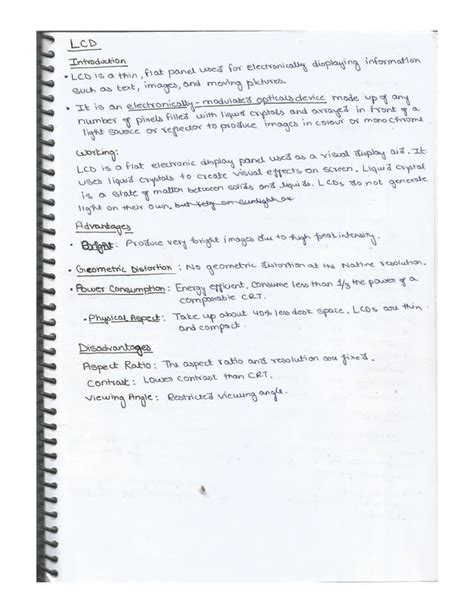 LCD
Introduction
• LCD is a thin, flat panel used for electronically displaying information
such as text, images, and moving pictures.
• It is an electronically-modulated optical device made up of any
number of pixels filled with liquid crystals and arrayed in front of a
light source or reflector to produce images in colour or monochrome
Working:
LCD is a flat electronic display panel used as a visual display aid. It
uses liquid crystals to create visual effects on screen. Liquid crystal
is a state of matter between solids and liquids. LCDs do not generate
light on their own.
Advantages
• Bright: Produce very bright images due to high peak intensity.
• Geometric Distortion: No geometric distortion at the Native resolution.
• Power Consumption: Energy efficient, consume less than 1/3 the power of a
comparable C.R.T.
• Physical Aspect: Take up about 40% less desk space. LCDs are thin
and compact.
Disadvantages
Aspect Ratio: The aspect ratio and resolution are fixed.
Contrast: Lower contrast than CRT.
Viewing Angle: Restricted viewing angle.